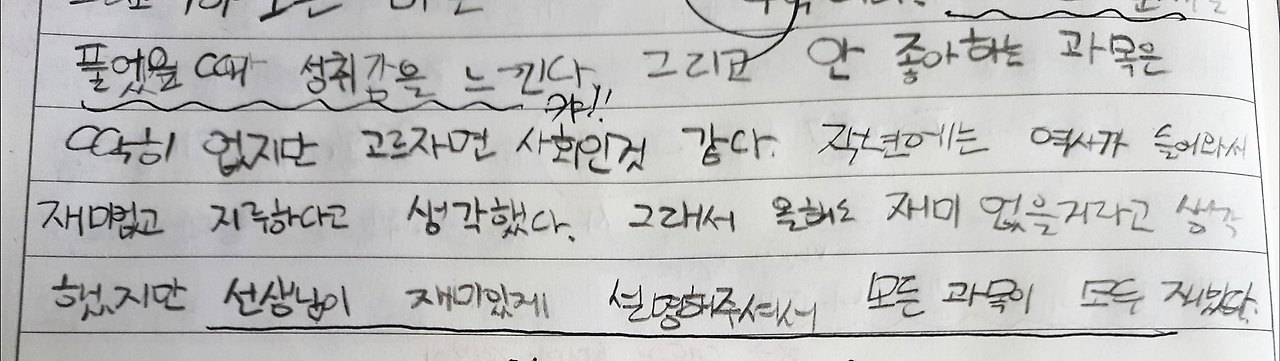 풀었을 때 성취감을 느낀다. 그리고 안 좋아하는 과목은
캬!!
딱히 없지만 고르자면 사회인것 같다. 작년에는 역사가 들어와서
재미없고 지루하다고 생각했다. 그래서 올해도 재미 없을거라고 생각
했었지만 선생님이 재미있게 설명해주셔서 모든 과목이 모두 재밌다.